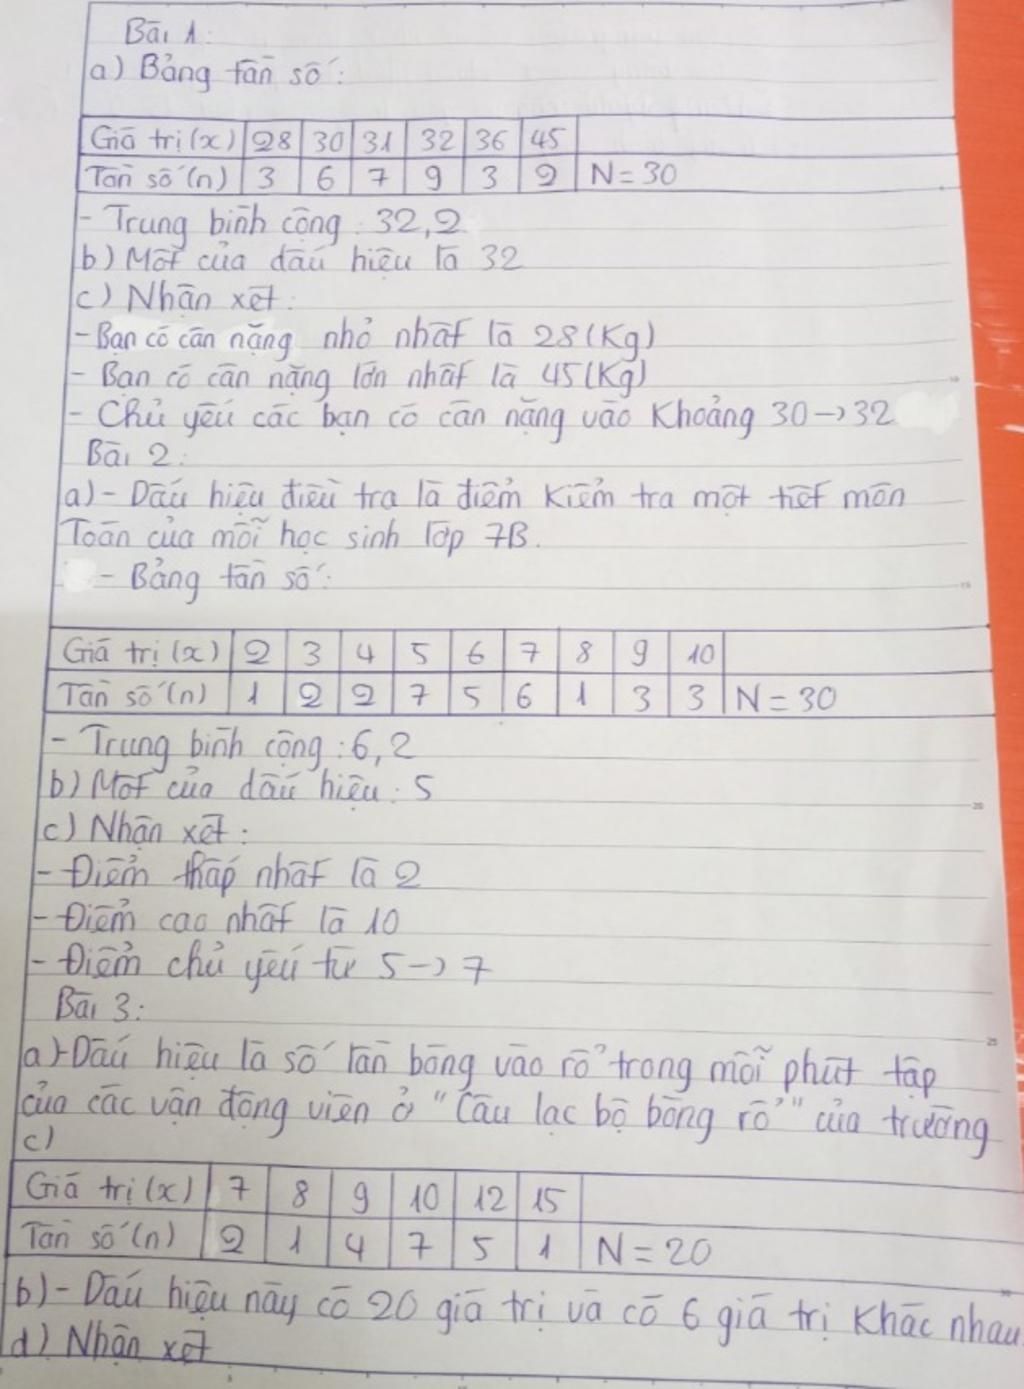 Bài 1:
a) Bảng tần số:
Giá trị (x) 28 30 31 32 36 45
Tần số (n) 3 6 7 9 3 2 N = 30
- Trung bình cộng: 32,2
b) Mốt của dấu hiệu là 32
c) Nhận xét:
- Bạn có cân nặng nhỏ nhất là 28 (Kg)
- Bạn có cân nặng lớn nhất là 45 (Kg)
- Chủ yếu các bạn có cân nặng vào Khoảng 30 → 32
Bài 2:
a) - Dấu hiệu điều tra là điểm kiểm tra một tiết môn
Toán của mỗi học sinh lớp 7B.
- Bảng tần số:
Giá trị (x) 2 3 4 5 6 7 8 9 10
Tần số (n) 1 2 2 7 5 6 1 3 3 N = 30
- Trung bình cộng: 6,2
b) Mốt của dấu hiệu: 5
c) Nhận xét:
- Điểm thấp nhất là 2
- Điểm cao nhất là 10
- Điểm chủ yếu từ 5 → 7
Bài 3:
a) - Dấu hiệu là số lần bóng vào rổ trong mỗi phút tập
của các vận động viên ở "Câu lạc bộ bóng rổ" của trường
c)
Giá trị (x) 7 8 9 10 12 15
Tần số (n) 2 1 4 7 5 1 N = 20
b) - Dấu hiệu này có 20 giá trị và có 6 giá trị Khác nhau
d) Nhận xét